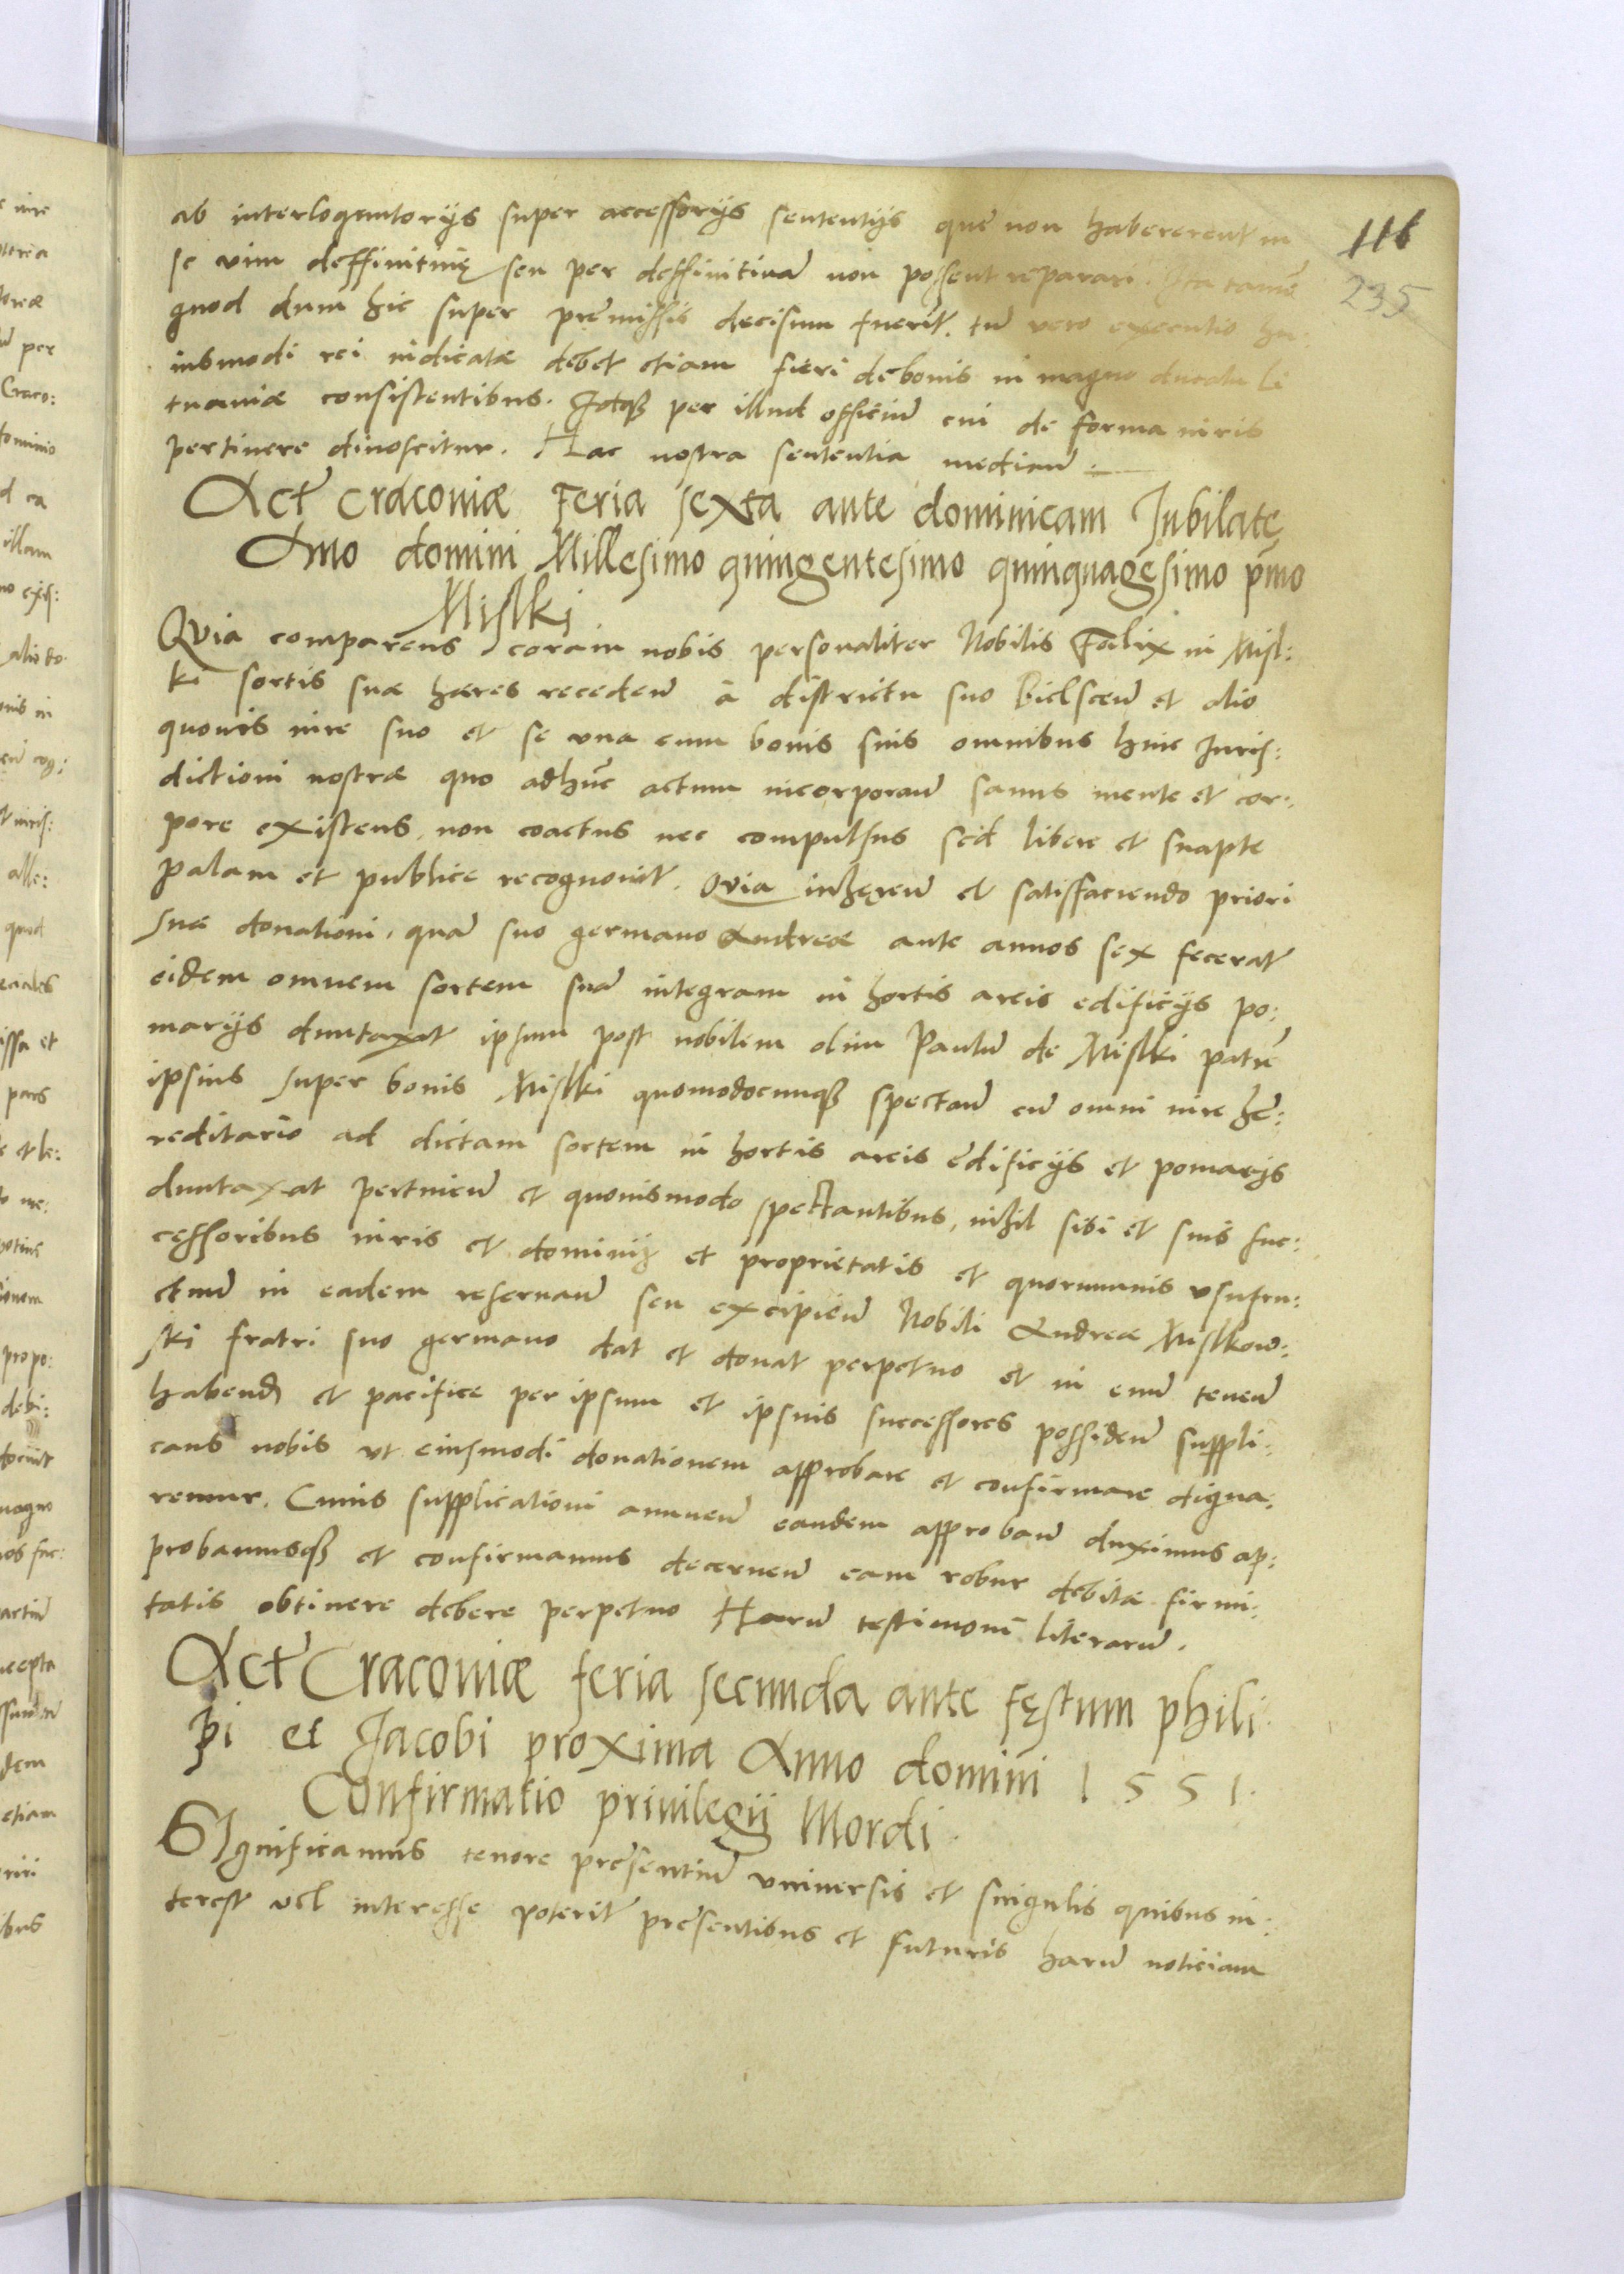 ab interloqentorijs super accessorijs sententijs que non habererent in
116
se uim deffinitiuę seu per deffinitiuā non possent reparari. Ita tamē
235
quod dum hic super premissis decisum fuerit. tū vero executio hu:
iusmodi rei iudicatæ debet etiam fieri de bonis in magno ducatu Li
tuaniæ consistentibus. Idq3 per illud officiū cui de forma iuris
pertinere dinoscitur. Hac nostra sententia mediañ.
Act̄ Cracoviæ Feria sexta ante dominicam Iubilatę
Anno domini Millesimo quingentesimo quinquagesimo pm̄o
Mislki
QVia comparens coram nobis personaliter Nobilis Fælix in Misl:
ki sortis suæ hæres recedeñ à districtu suo Bielsceñ et alio
quouis iure suo et se vna cum bonis suis omnibus huic Iuris:
dictioni nostræ quo adhūc actum incorporañ sanus mente et cor:
pore existens, non coactus nec compulsus sed libere et suapte
palam et publice recognouit. Qvia inhęreñ et satisfaciendo priori
suæ donationi, quā suo germano Andreæ ante annos sex fecerat
eidem omnem sortem suā integram in hortis areis edificijs po:
marijs duntaxat ipsum post nobilem olim Paulū de Mislki patrē
ipsius super bonis Mislki quomodocunq3 spectañ cū omni iure he:
reditario ad dictam sortem in hortis areis edificijs et pomarijs
duntaxat pertineñ et quouismodo spectantibus, nihil sibi et suis suc:
cessoribus iuris et dominij et proprietatis et quorumuis vsufru:
ctuū in eadem reseruañ seu excipieñ Nobili Andreæ Mislkow:
ski fratri suo germano dat et donat perpetuo et in euū teneñ
habend et pacifice per ipsum et ipsius successores possideñ suppli:
cans nobis vt eiusmodi donationem approbare et confirmare digna:
remur. Cuius supplicationi annueñ eandem approbañ duximus ap:
probamusq3 et confirmamus decerneñ eam robur debitæ firmi:
tatis obtinere debere perpetuo Harū testimonī literarū.
Act̄ Cracoviæ feria secunda ante fęstum phili
pi et Jacobi proxima Anno domini 1551.
Confirmatio priuilegij Mordi
SIgnificamus tenore presentiū vniuersis et singulis quibus in:
terest vel interesse poterit presentibus et futuris harū noticiam